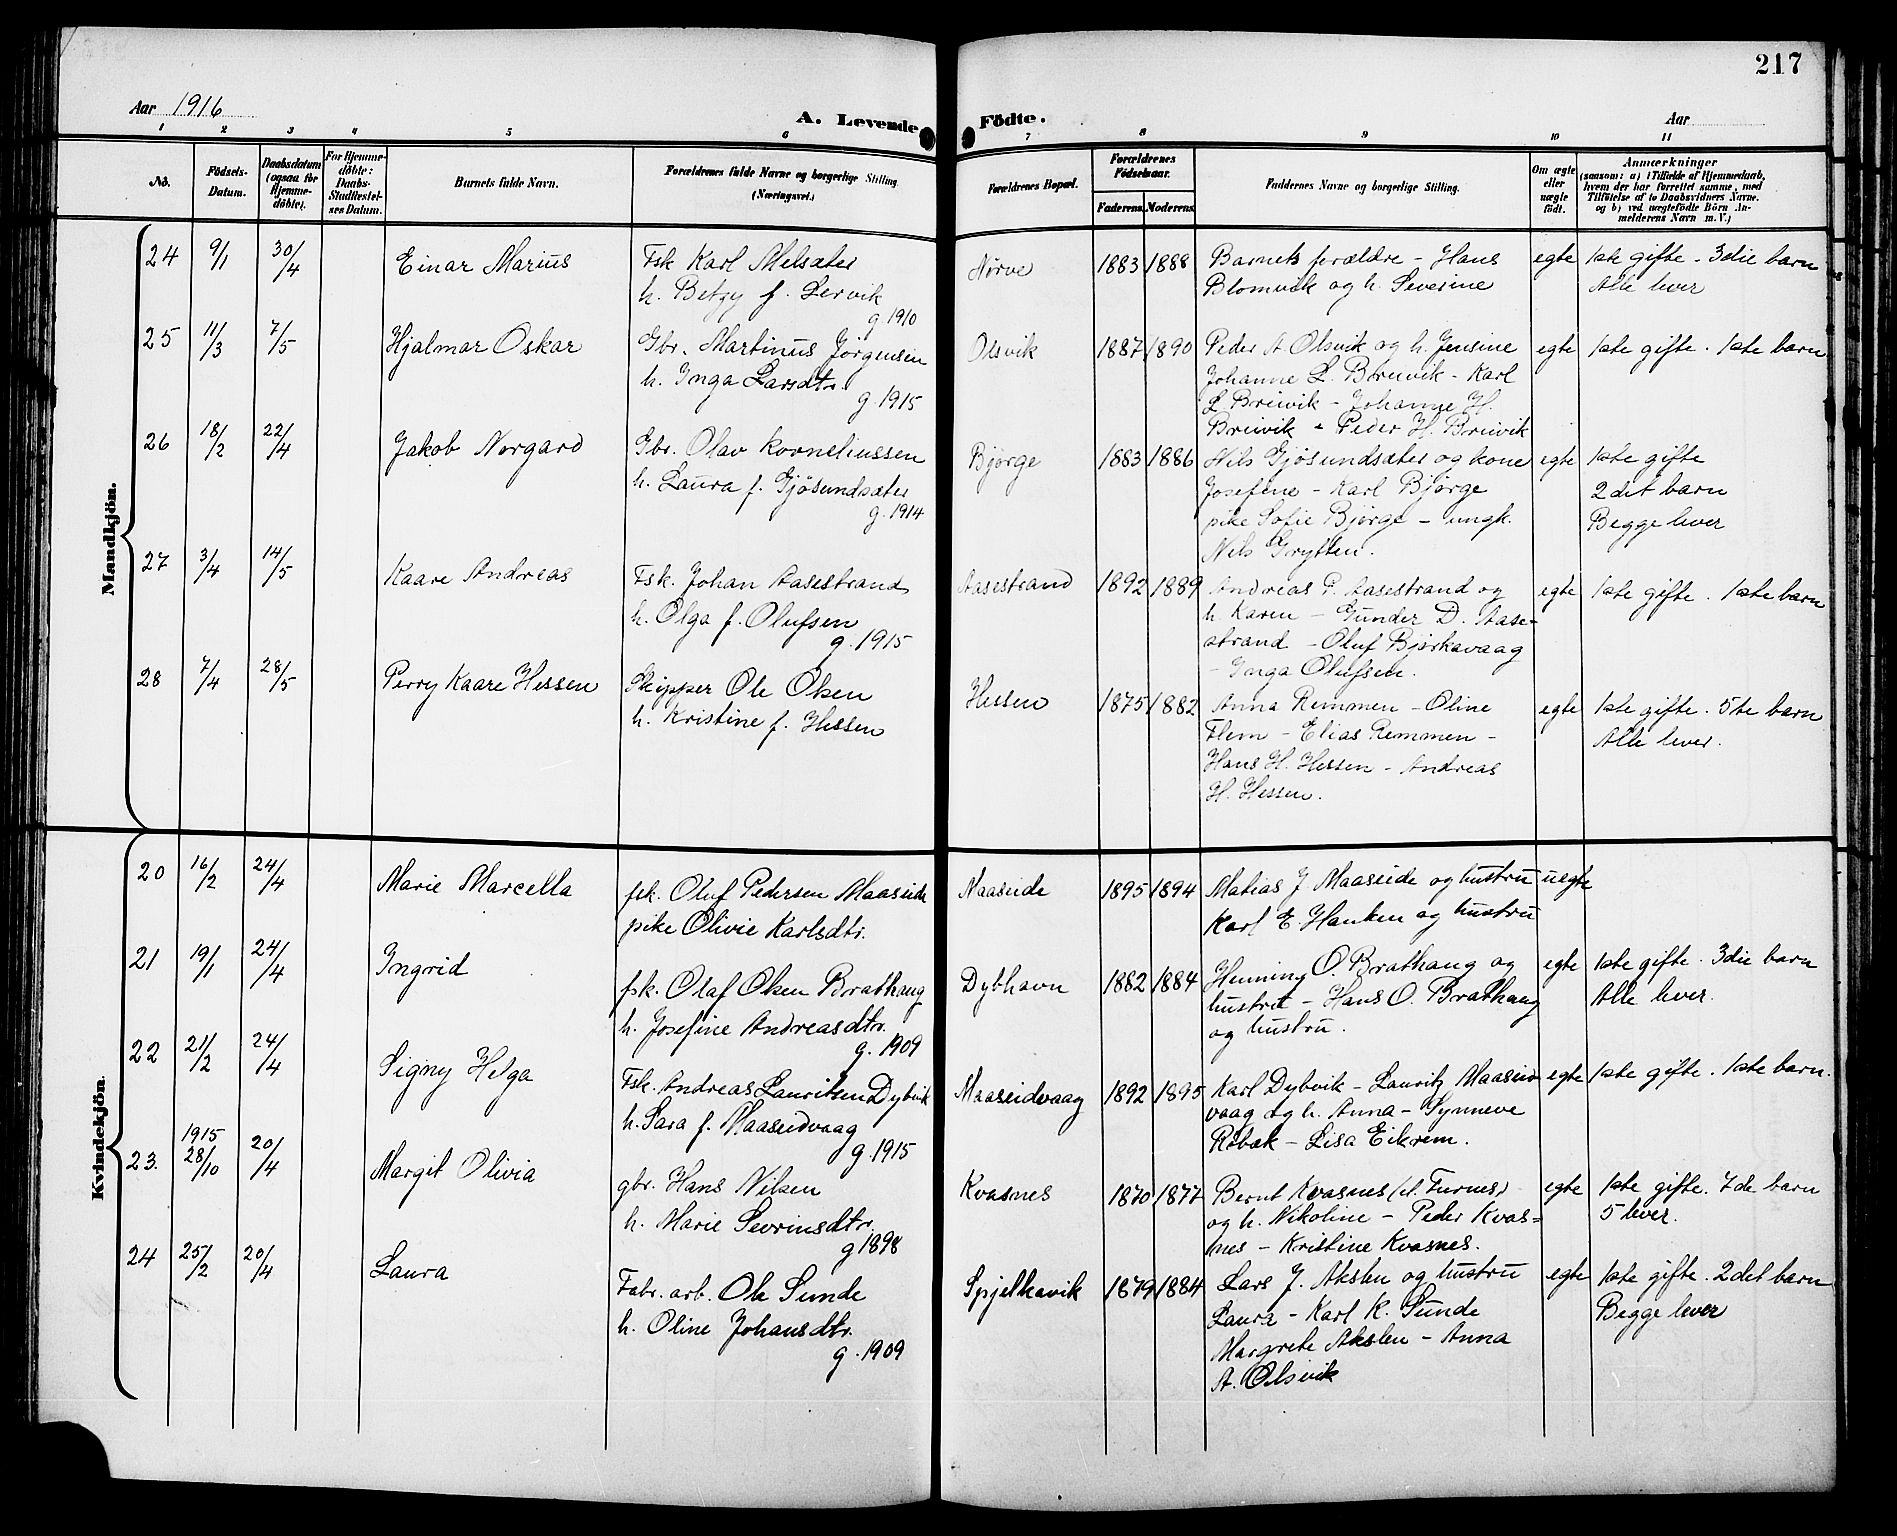 217
Aar 1916
A. Levende Födte.
Aar
1 2 3 4 5 6 7 8 9 10 11
No.
Födsels-Datum.
Daabsdatum (ogsaa for Hjemme-döbte).
For Hjemme-döbte: Daabs-Stadfæstel-ses Datum.
Barnets fulde Navn.
Forældrenes fulde Navne og borgerlige Stilling (Næringsvei.)
Forældrenes Bopæl.
Forældrenes Födselsaar.
Faderens. Moderens.
Faddernes Navne og borgerlige Stilling.
Om ægte eller uægte födt.
Anmærkninger
(saasom: a) i Tilfælde af Hjemmedaab,
hvem der har forrettet samme, med
Tilföielse af to Daabsvidners Navne.
og b) ved uægtefödte Börn An-
melderens Navn m. V.)
Mandkjön.
24 9/1 30/4 Einar Marius Fsk Karl Melsæter Nörve 1883 1888 Barnets forældre - Hans egte 1ste gifte. 3die barn
h. Betzy f. Lervik Blomvik og h. Severine Alle lever
g. 1910
25 11/3 7/5 Hjalmar Oskar Gbr. Martinus Jörgensen Olsvik 1887 1890 Peder A Olsvik og h. Jensine egte 1ste gifte. 1ste barn
h. Inga Larsdtr. Johanne L. Breivik - Karl
g. 1915 L Breivik - Johanne H.
Breivik - Peder H. Breivik
26 18/2 22/4 Jakob Norgard Gbr. Olav Korneliussen Bjørge 1883 1886 Nils Gjösundsæter og kone egte 1ste gifte
h. Laura f. Gjösundsæter Josefine - Karl Bjørge 2det barn
g. 1914 pike Sofie Bjørge - ungk. Begge lever
Nils Grytten.
27 3/4 14/5 Kaare Andreas Fsk. Johan Aasestrand Aasestrand 1892 1889 Andreas P. Aasestrand og egte 1ste gifte. 1ste barn
h. Olga f. Olufsen h. Karen - Gunder D. Aase-
g. 1915 strand - Oluf Bjørkavaag
- Inga Olufsen.
28 7/4 28/5 Perry Kaare Hessen Skipper Ole Olsen Hessen 1875 1882 Anna Remmen - Oline egte 1ste gifte. 5te barn
h. Kristine f. Hessen Flem - Elias Remmen - Alle lever.
Hans H. Hessen - Andreas
H. Hessen.
Kvindekjön.
20 16/2 24/4 Marie Marcella fsk. Oluf Pedersen Maaseide Maaseide 1895 1894 Matias J Maaseide og hustru uegte
pike Olivie Karlsdtr. Karl E. Hanken og hustru
21 19/1 24/4 Ingrid fsk. Olaf Olsen Brathaug Dybhavn 1882 1884 Henning O. Brathaug og egte 1ste gifte. 3die barn
h. Josefine Andreasdtr. hustru - Hans O. Brathaug Alle lever.
g. 1909 og hustru.
22 21/2 24/4 Signy Helga Fsk. Andreas Lauritsen Dybvik Maaseidvaag 1892 1895 Karl Dybvik - Lauritz Maaseid- egte 1ste gifte. 1ste barn.
h. Sara f. Maaseidvaag vaag og h. Anna - Synneve
g. 1915 Røbæk - Lisa Eikrem.
23. 1915 28/10 20/4 Margit Olivia gbr. Hans Nilsen Kvasnes 1870 1877 Bernt Kvasnes (el. Furnes) egte 1ste gifte. 7de barn
h. Marie Sevrinsdtr. og h. Nikoline - Peder Kvas- 5 lever.
g 1898 nes - Kristine Kvasnes.
24 25/2 20/4 Laura Fabr. arb. Ole Sunde Spjelkavik 1879 1884 Lars J. Akslen og hustru egte 1ste gifte. 2det barn
h. Oline Johansdtr. Laura - Karl K. Sunde Begge lever
g. 1909 Margrete Akslen - Anna
A. Olsvik